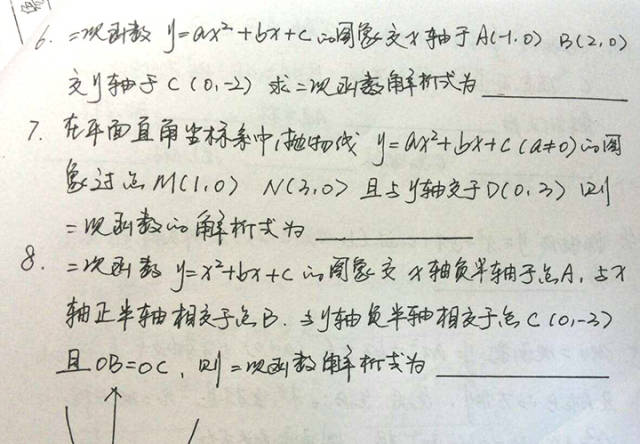 6. 二次函数 y=ax²+bx+c的图象交x轴于A(-1,0) B(2,0)
交y轴于C(0,-2) 求二次函数解析式为
7. 在平面直角坐标系中,抛物线 y=ax²+bx+c(a≠0)的图
象过点M(1,0) N(3,0) 且与y轴交于D(0,3) 则
二次函数的解析式为
8. 二次函数y=x²+bx+c的图象交x轴负半轴于点A,与x
轴正半轴相交于点B.与y轴负半轴相交于点C(0,-3)
且OB=OC,则二次函数解析式为